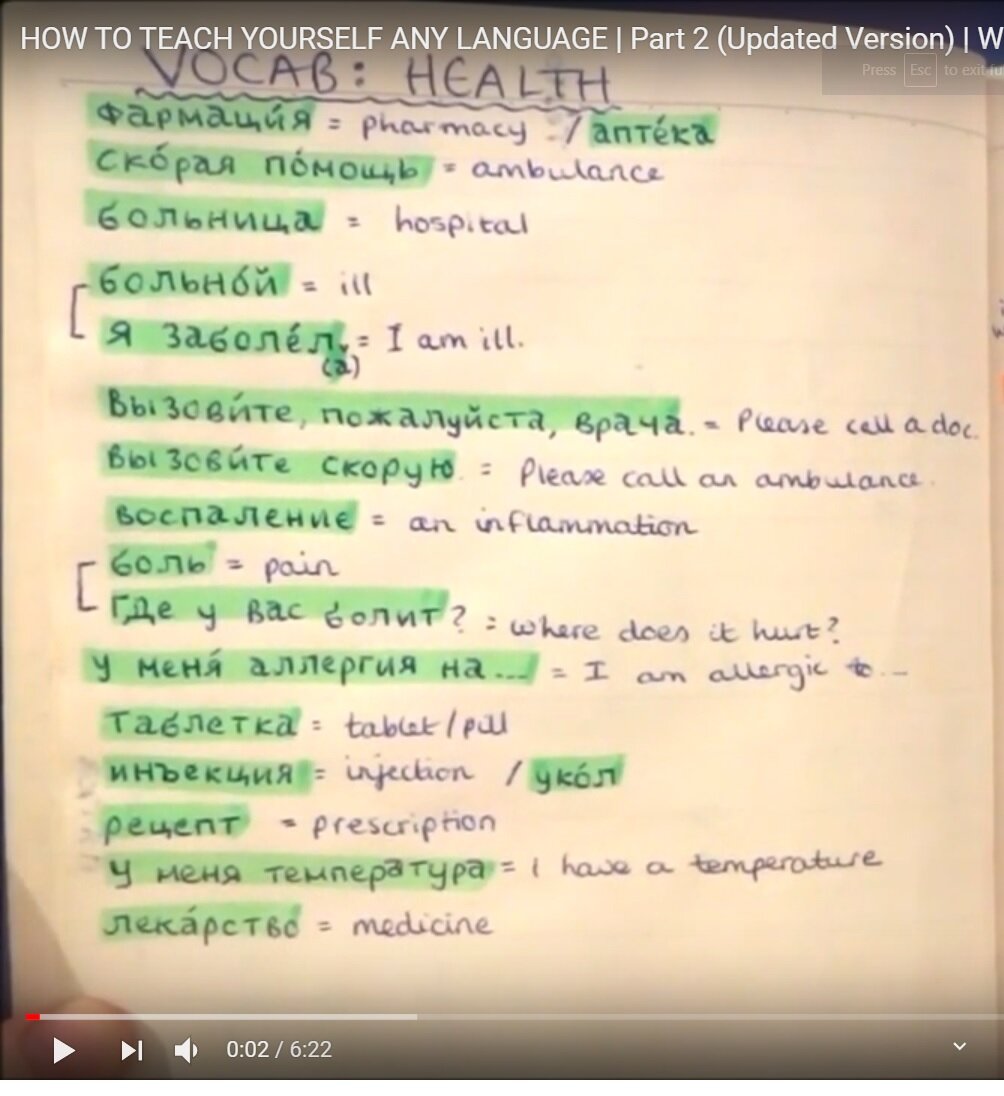 HOW TO TEACH YOURSELF ANY LANGUAGE | Part 2 (Updated Version) | W
Press Esc to exit fu
VOCAB: HEALTH
Фармаци́я = pharmacy / апте́ка
Ско́рая по́мощь = ambulance
больница = hospital
больно́й = ill
Я заболе́л = I am ill.
(а)
Вызови́те, пожалуйста, врача. = Please call a doc.
Вызови́те скорую. = Please call an ambulance.
воспаление = an inflammation
боль = pain
Где у вас болит? = where does it hurt?
у меня́ аллергия на... = I am allergic to...
таблетка = tablet/pill
инъекция = injection / уко́л
рецепт = prescription
У меня температура = I have a temperature
лека́рство = medicine
0:02 / 6:22